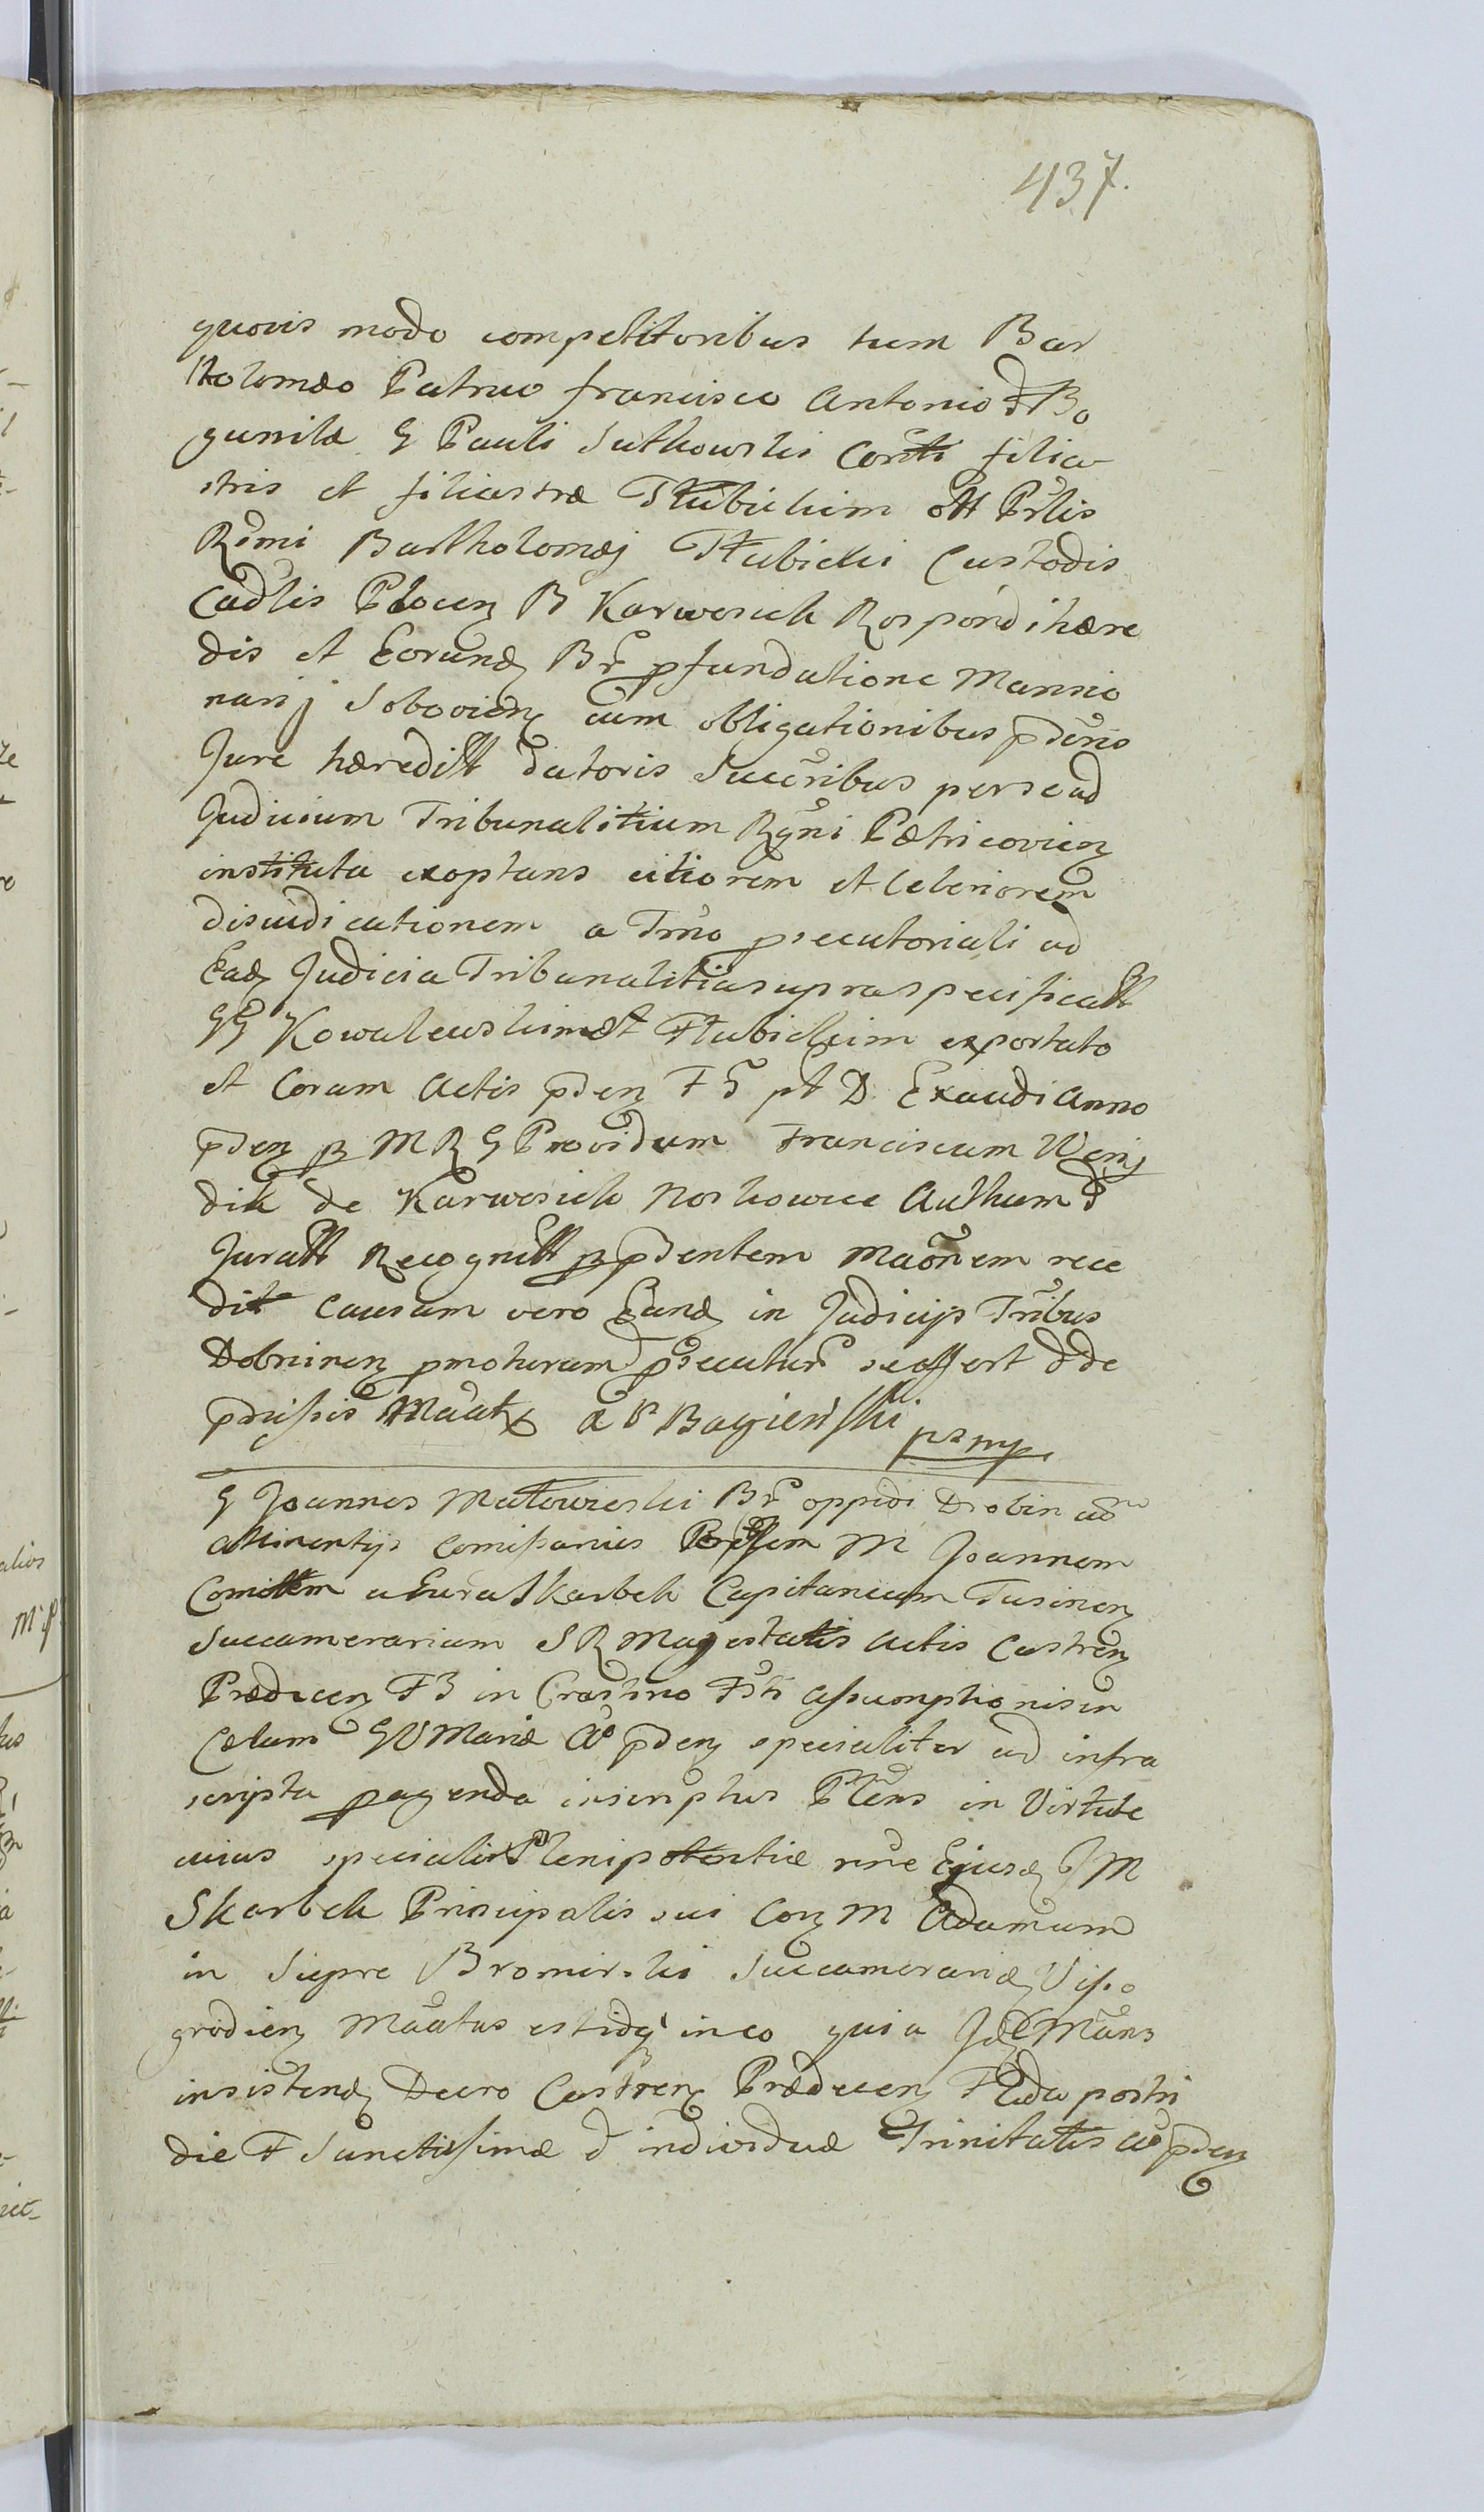 437.
quovis modo competitoribus tum Bar
tholomæo Patruo Francisco Antonio & Bo
gumila G Pauli Sutkowski Conti filia
stris et filiastræ Hłubickim ott Prlis
Rdmi Bartholomæj Hłubicki Custodis
Cadlis Plocen B Karwosiek Rospondi hære
dis et Eorund Br p fundatione Mansio
narij Sobovien cum obligationibus pdenis
Jure hæreditt datoris Succribus per se ad
Judicium Tribunalitium Rgni Petricovien
instituta exoptans citiorem et Celeriorem
disiudicationem a Trno psecutoriali ad
Ead Judicia Tribunalitia supra specificatt
GG Kowalewskim et Hłubickim exportato
et Coram Actis pden F 5 pt D Exaudi Anno
pden p M R G Providum Franciscum Weiy
dik de Karwosiek Noskowice Authum &
Juratt Recognitt p pdentem Maonem rece
dit Causam vero Eand in Judicijs Tribus
Dobrinen pmoturum & psecutur se offert & de
pmissis Maat x a P Bagieński
pr mp
G Joannes Małowieski Br oppidi Drobin cu
attinentijs Comissarius Perillem M Joannem
Comittem a Gura Skarbek Capitaneum Tusinen
Succamerarium S R Majestatis Actis Castren
Prædecen F 3 in Crastino Fsti Assumptionis in
Cælum B V Mariæ Ao pden specialiter ad infra
scripta p agenda inscriptus Pltens in Virtute
cuius specialis Plenipotentiæ nne Ejusd G M
Skarbek Principalis sui Con M Adamum
in Siepre Bromirski Succamerarid Visso
grodien Maatus est idq in eo quia Jd Mans
insistend Decro Castren Prædecen F Ada postri
die F Sanctissimæ & individuæ Trinitatis Ao pden